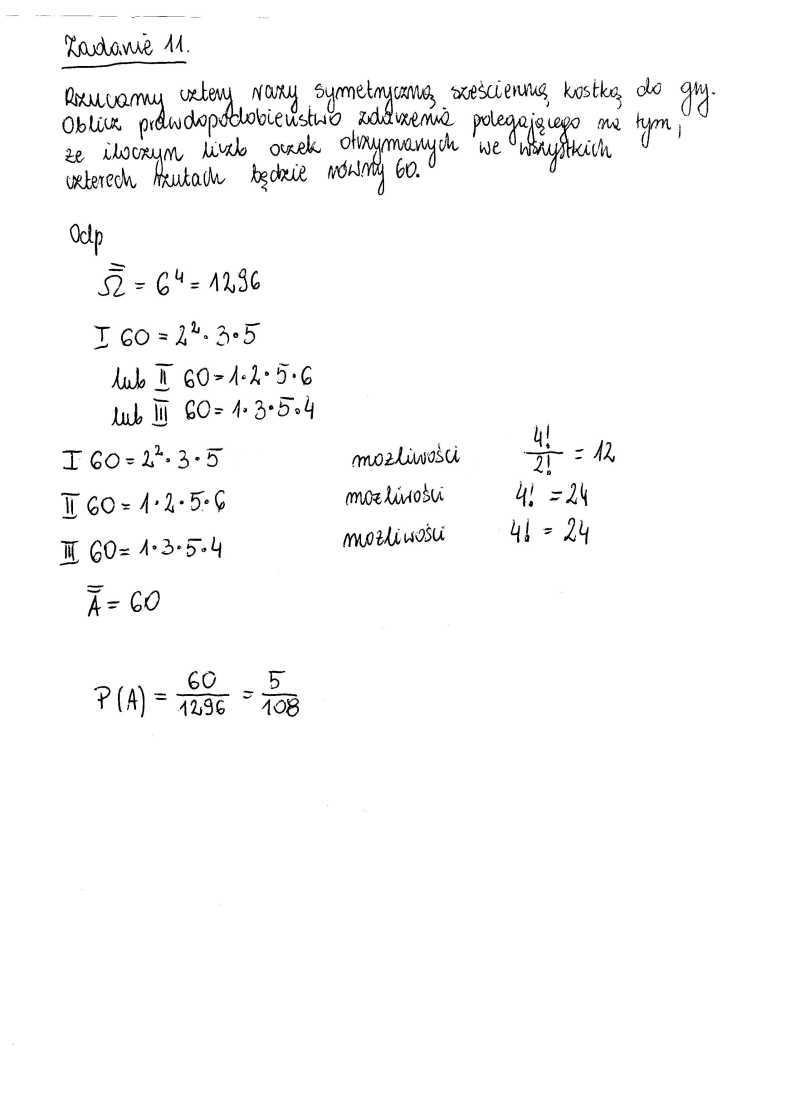 Zadanie 11.
Rzucamy cztery razy symetryczną sześcienną kostką do gry.
Oblicz prawdopodobieństwo zdarzenia polegającego na tym,
że iloczyn liczb oczek otrzymanych we wszystkich
czterech rzutach będzie równy 60.
Odp
Ω̿ = 6⁴ = 1296
I 60 = 2² · 3 · 5
lub II 60 = 1 · 2 · 5 · 6
lub III 60 = 1 · 3 · 5 · 4
I 60 = 2² · 3 · 5 możliwości 4!/2! = 12
II 60 = 1 · 2 · 5 · 6 możliwości 4! = 24
III 60 = 1 · 3 · 5 · 4 możliwości 4! = 24
A̿ = 60
P(A) = 60/1296 = 5/108